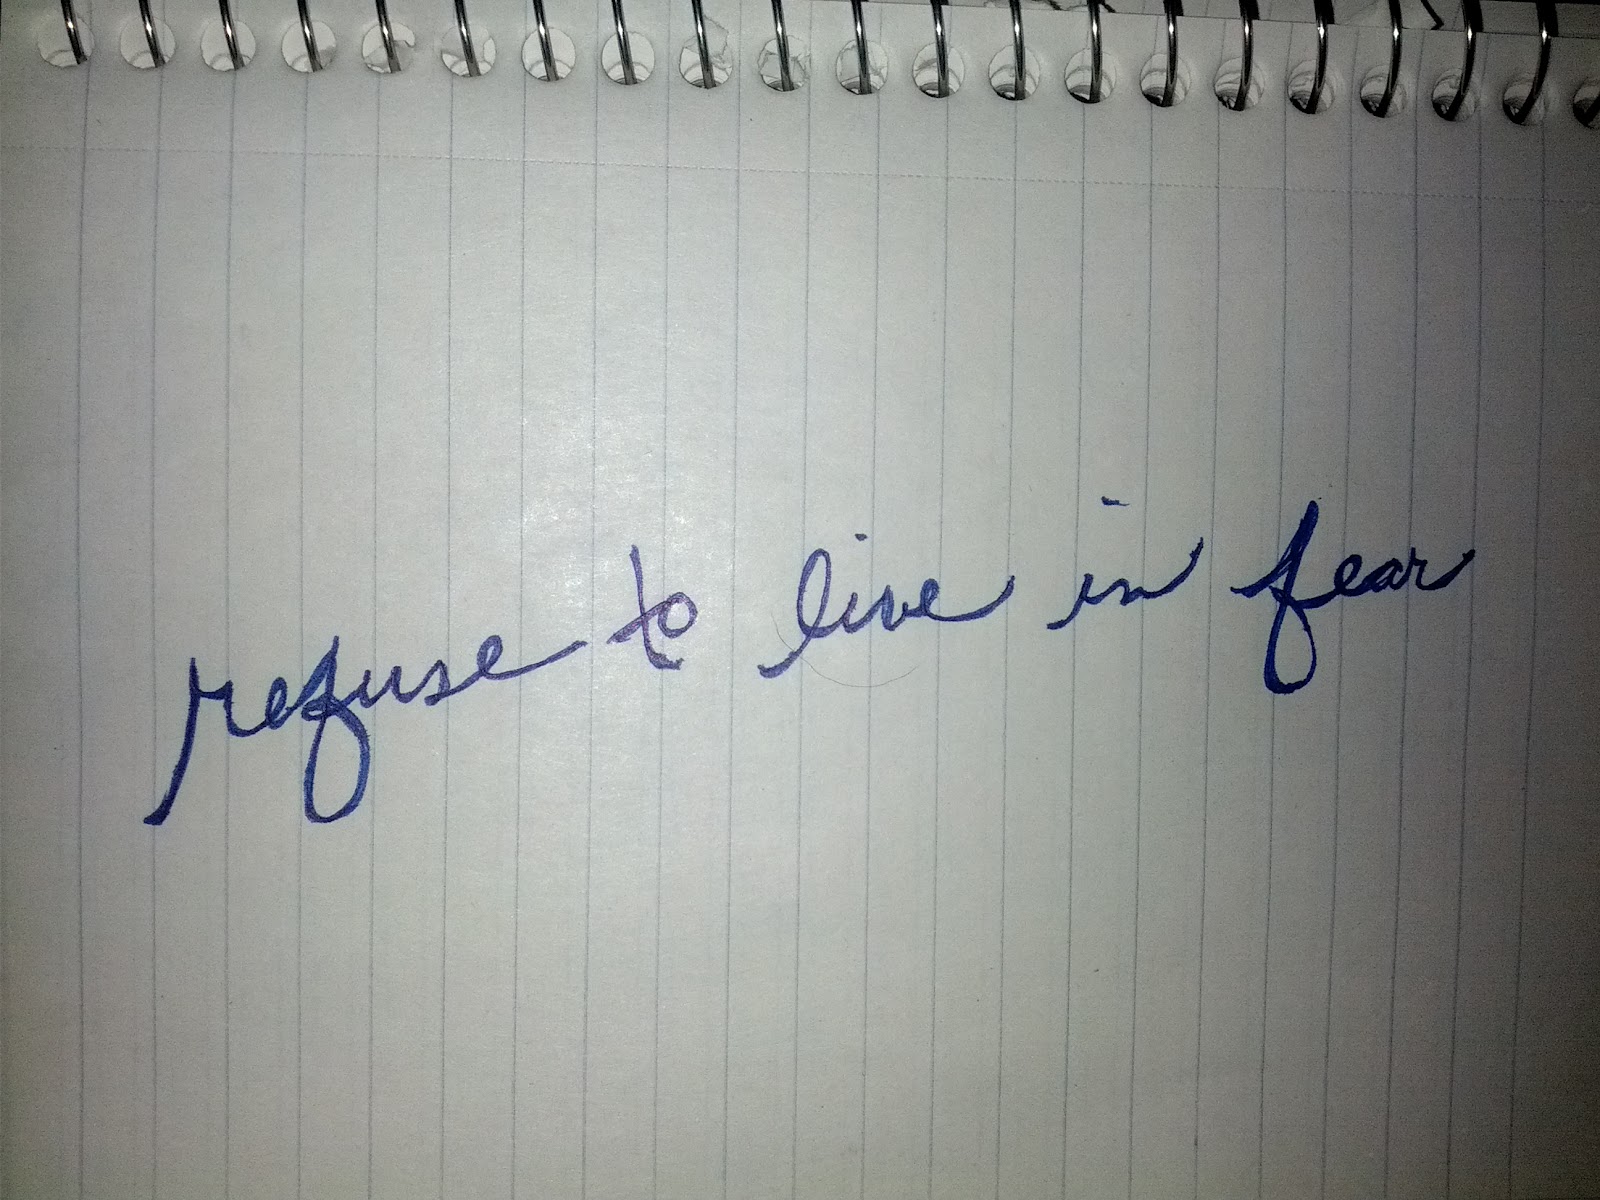 refuse to live in fear